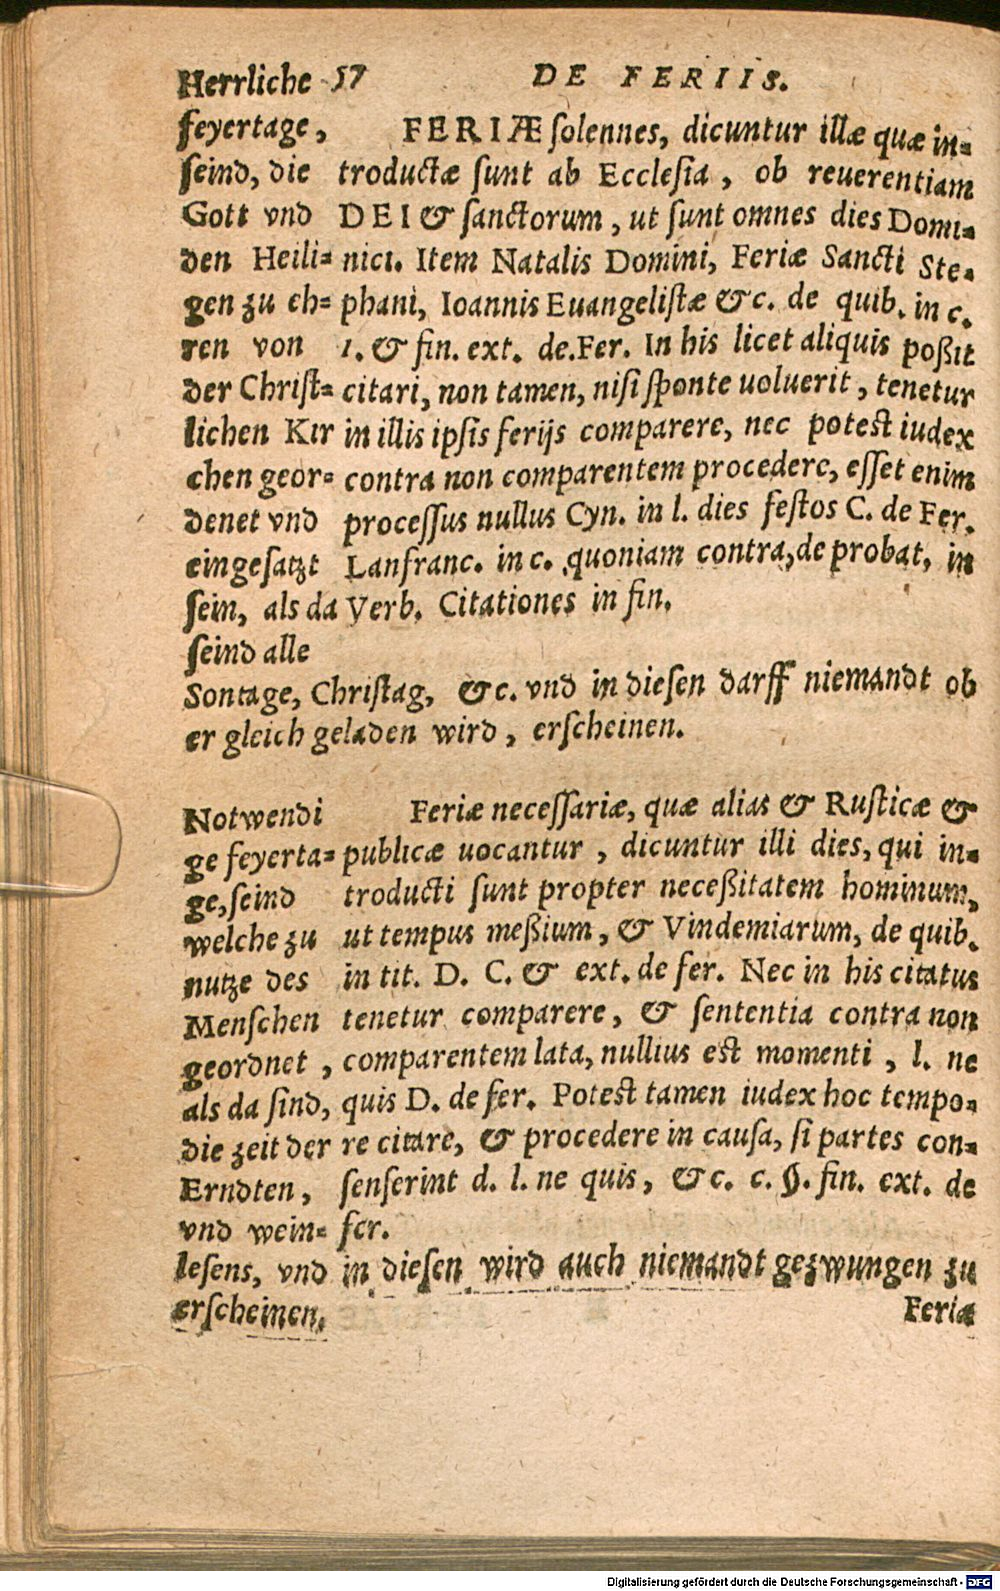 57 DE FERIIS.
Herrliche
feyertage,
seind, die
Gott vnd
den Heili=
gen zu eh=
ren von
der Christ=
lichen Kir
chen geor=
denet vnd
eingesatzt
sein, als da
seind alle
Sontage, Christag, &c. vnd in diesen darff niemandt ob
er gleich geladen wird, erscheinen.
FERIÆ solennes, dicuntur illæ quæ in=
troductæ sunt ab Ecclesia, ob reuerentiam
DEI & sanctorum, ut sunt omnes dies Domi=
nici. Item Natalis Domini, Feriæ Sancti Ste=
phani, Ioannis Euangelistæ &c. de quib. in c.
1. & fin. ext. de.Fer. In his licet aliquis poßit
citari, non tamen, nisi sponte uoluerit, tenetur
in illis ipsis ferijs comparere, nec potest iudex
contra non comparentem procedere, esset enim
processus nullus Cyn. in l. dies festos C. de Fer.
Lanfranc. in c. quoniam contra, de probat, in
Verb. Citationes in fin.
Notwendi
ge feyerta=
ge, seind
welche zu
nutze des
Menschen
geordnet,
als da sind,
die zeit der
Erndten,
vnd wein=
lesens, vnd in diesen wird auch niemandt gezwungen zu
erscheinen.
Feriæ necessariæ, quæ alias & Rusticæ &
publicæ uocantur, dicuntur illi dies, qui in=
troducti sunt propter neceßitatem hominum,
ut tempus meßium, & Vindemiarum, de quib.
in tit. D. C. & ext. de fer. Nec in his citatus
tenetur comparere, & sententia contra non
comparentem lata, nullius est momenti, l. ne
quis D. de fer. Potest tamen iudex hoc tempo=
re citare, & procedere in causa, si partes con=
senserint d. l. ne quis, &c. c. §. fin. ext. de
fer.
Feriæ
Digitalisierung gefördert durch die Deutsche Forschungsgemeinschaft - DFG